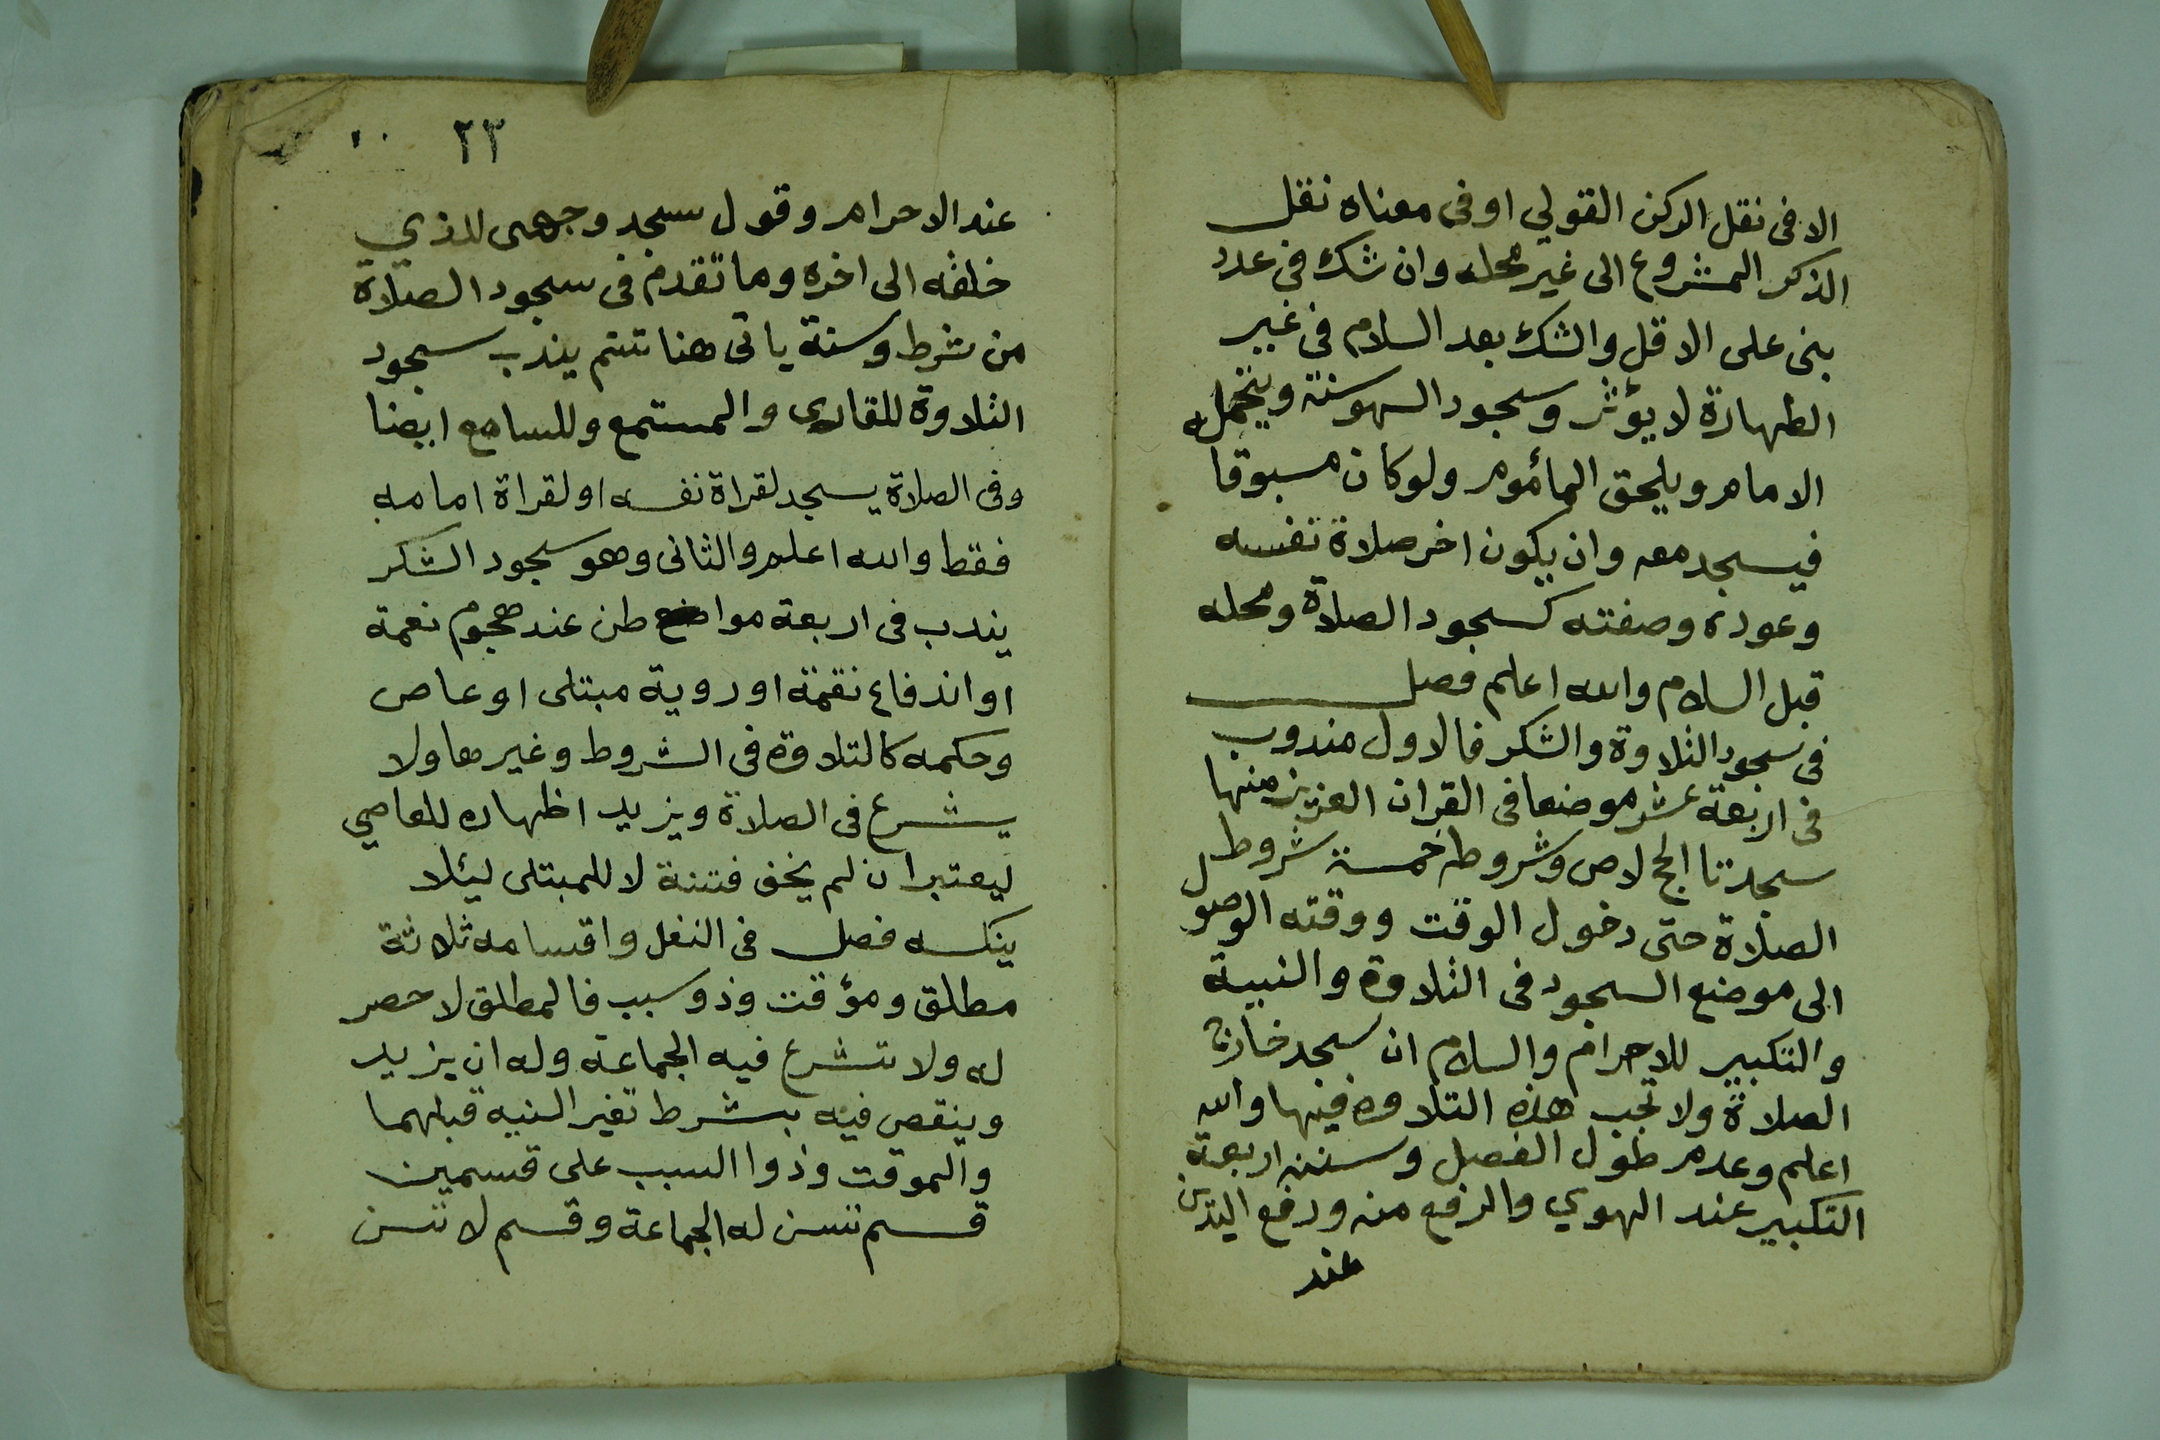 الا فى نقل الركن القولي او فى معناه نقل
الذكر المشروع الى غير محله وان شك فى عدد
بنى على الاقل والشك بعد السلام فى غير
الطهارة لا يؤثر وسجود السهو سنة ويتحمله
الامام ويلحق المأموم ولو كان مسبوقا
فيسجد معه وان يكون اخر صلاة نفسه
وعوده وصفته كسجود الصلاة ومحله
قبل السلام والله اعلم فصل
فى سجود التلاوة والشكر فالاول مندوب
فى اربعة عشر موضعا فى القران العزيز منها
سجدتا الحج لا ص وشروطه خمسة شروط
الصلاة حتى دخول الوقت ووقته الوصول
الى موضع السجود فى التلاوة والنية
والتكبير للاحرام والسلام ان سجد خارج
الصلاة ولا تجب هذه التلاوة فيها والله
اعلم وعدم طول الفصل وسننه اربعة
التكبير عند الهوي والرفع منه ورفع اليدين
عند
٢٣
عند الاحرام وقول سجد وجهى للذي
خلقه الى اخره وما تقدم فى سجود الصلاة
من شرط وسنة ياتى هنا تتم يندب سجود
التلاوة للقارى والمستمع وللسامع ايضا
وفى الصلاة يسجد لقراة نفسه او لقراة امامه
فقط والله اعلم والثانى وهو سجود الشكر
يندب فى اربعة مواطن عند هجوم نعمة
او اندفاع نقمة او روية مبتلى او عاص
وحكمه كالتلاوة فى الشروط وغيرها ولا
يشرع فى الصلاة ويزيد اظهاره للعاصي
ليعتبر ان لم يخف فتنة لا للمبتلى ليئلا
ينكسه فصل فى النفل واقسامه ثلاثة
مطلق ومؤقت وذو سبب فالمطلق لا حصر
له ولا تشرع فيه الجماعة وله ان يزيد
وينقص فيه بشرط تغير النيه قبلهما
والموقت وذوا السبب على قسمين
قسم تسن له الجماعة وقسم لا تسن